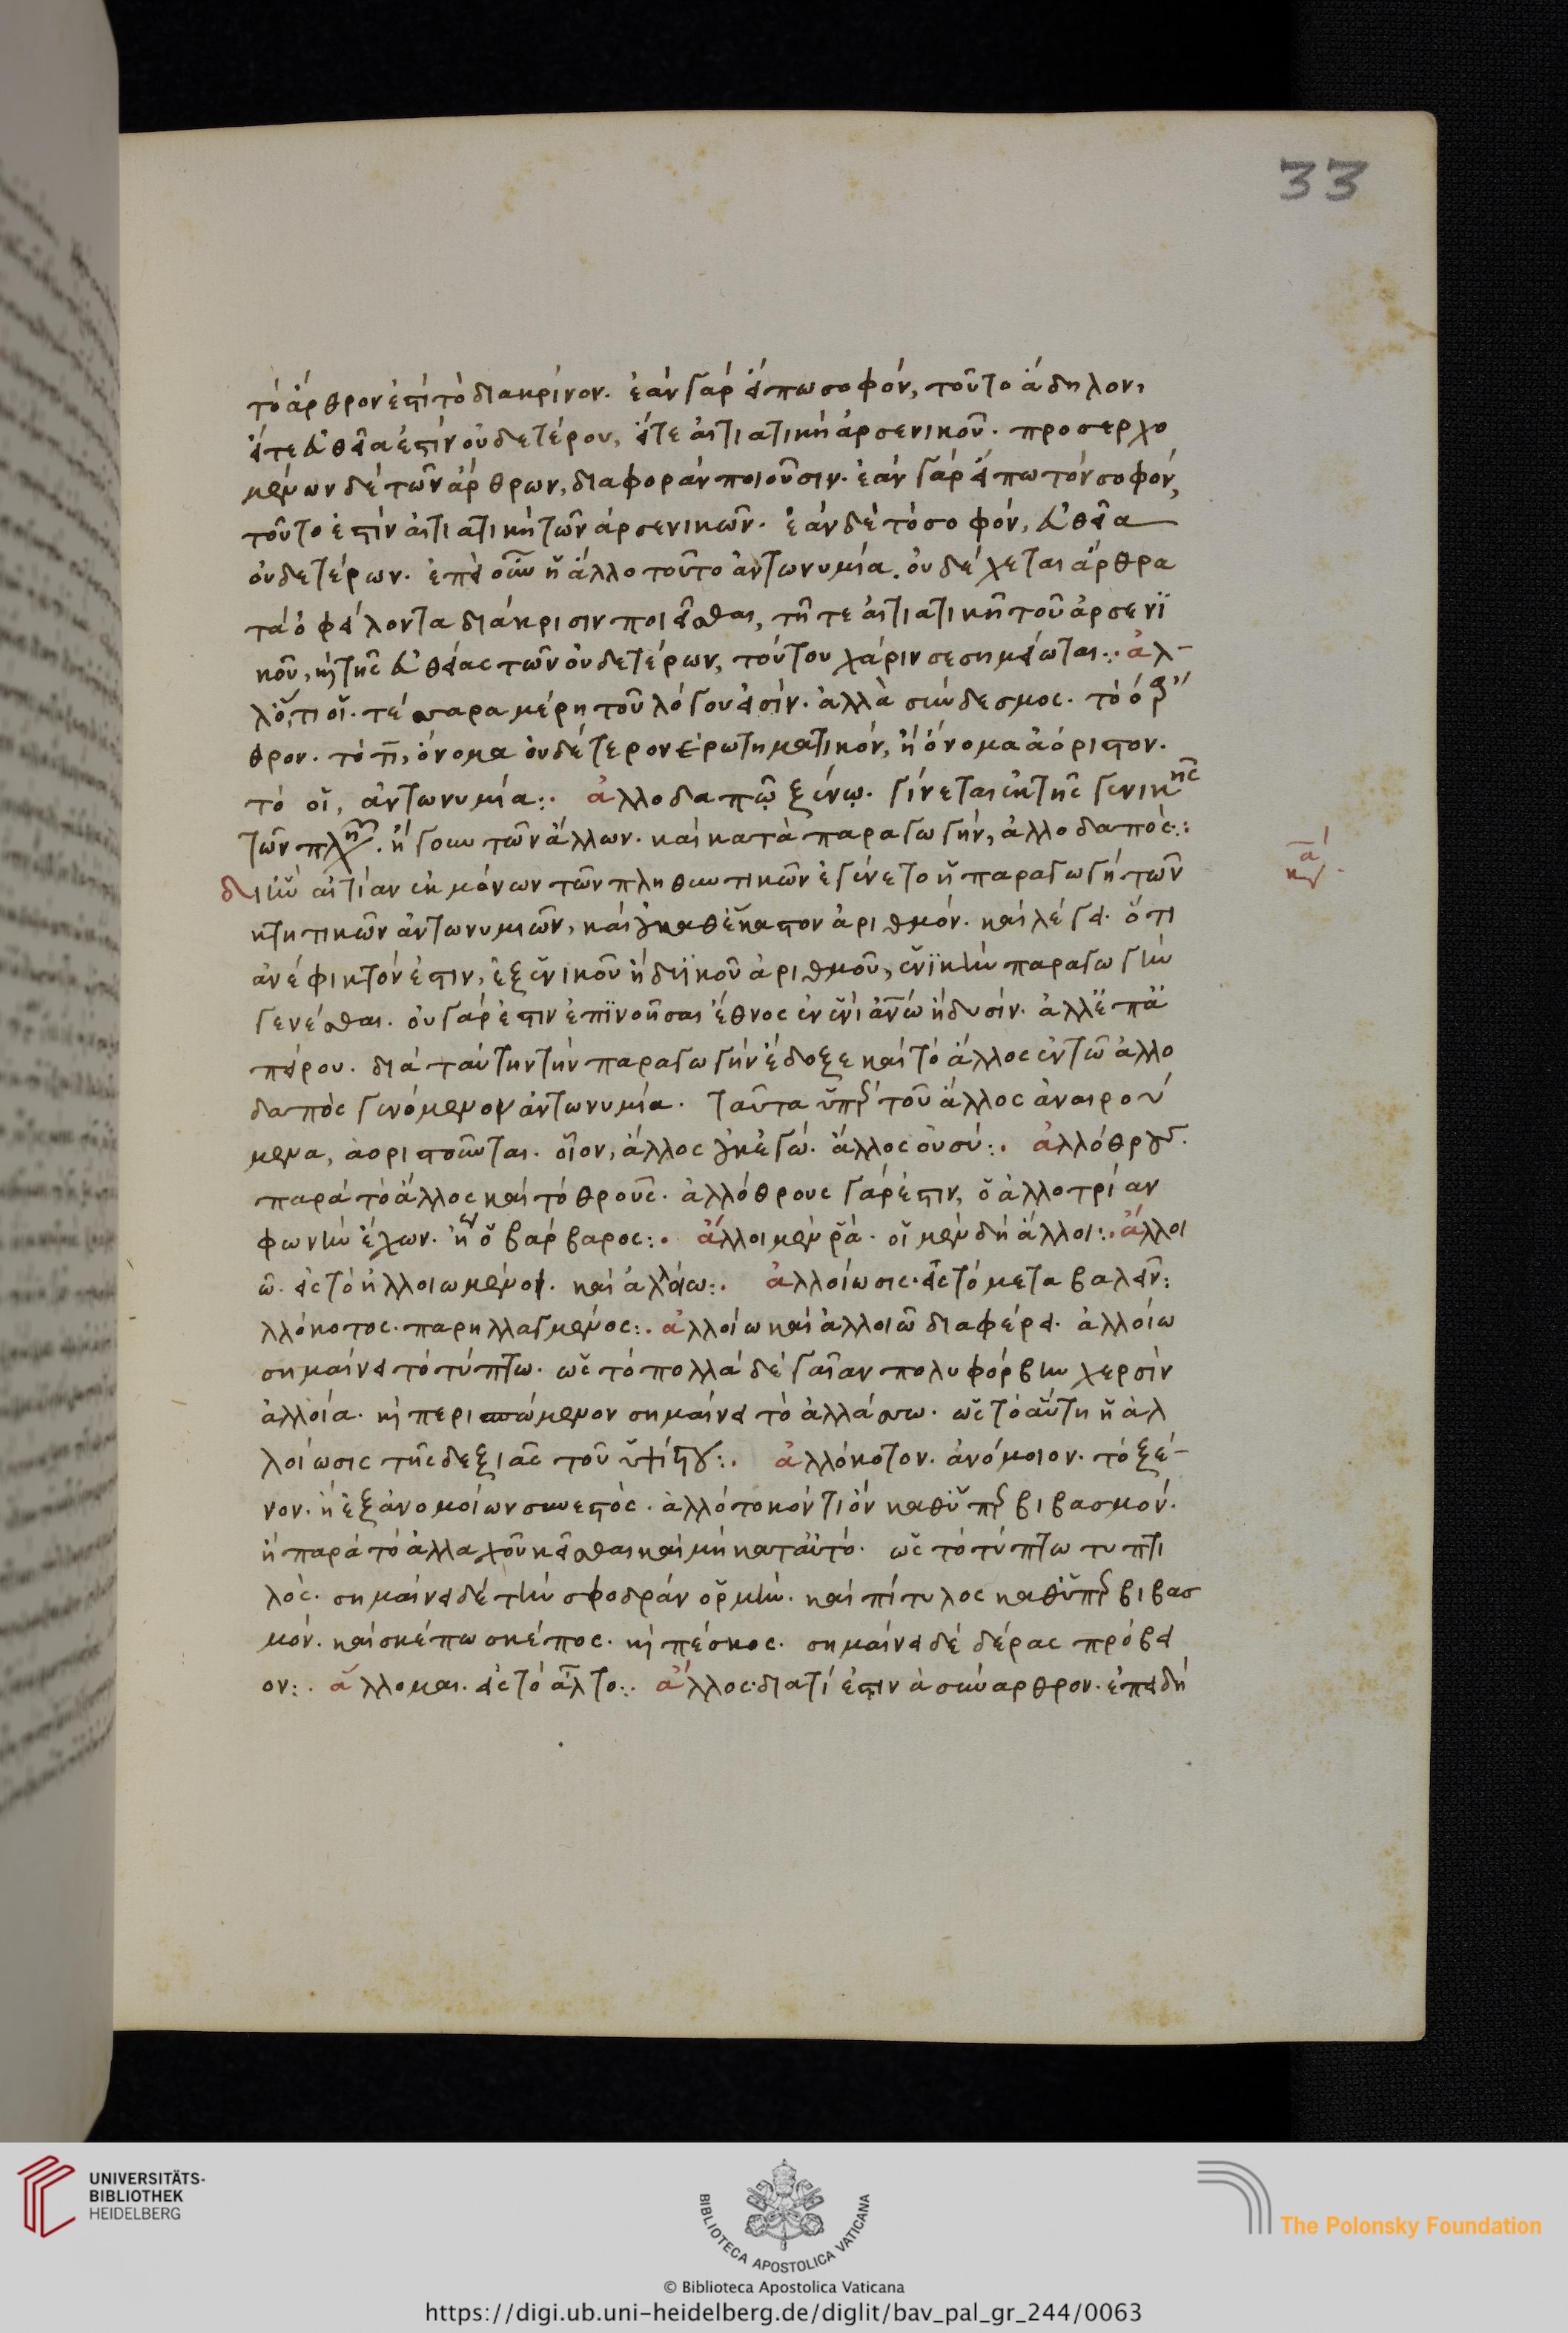 33
τὸ ἄρθρον ἐστὶ τὸ διακρίνον. ἐὰν γὰρ εἴπω σοφόν, τοῦτο ἄδηλον,
εἴτε εὐθεῖα ἐστὶν οὐδετέρου, εἴτε αἰτιατικὴ ἀρσενικοῦ. προσερχο
μένων δὲ τῶν ἄρθρων, διαφορὰν ποιοῦσιν. ἐὰν γὰρ εἴπω τὸν σοφόν,
τοῦτο ἐστὶν αἰτιατικὴ τῶν ἀρσενικῶν. ἐὰν δὲ τὸ σοφόν, εὐθεῖα
οὐδετέρων. ἐπεὶ οὖν ἡ ἄλλο τοῦτο ἀντωνυμία. οὐ δέχεται ἄρθρα
τὰ ὀφείλοντα διάκρισιν ποιεῖσθαι, τῆ τε αἰτιατικῆ τοῦ ἀρσενϊ
κοῦ, κὴ τῆς εὐθείας τῶν οὐδετέρων, τούτου χάριν σεσημείωται:. ἀλ-
λ' ὅ,τι οἵ. τέσσαρα μέρη τοῦ λόγου εἰσίν. ἀλλὰ σύνδεσμος. τὸ ὁ ἄρ
θρον. τὸ τι, ὄνομα οὐδέτερον ἐρωτηματικόν, ἢ ὄνομα ἀόριστον.
τὸ οἵ, ἀντωνυμία:. ἀλλοδαπῷ ξένῳ. γίνεται ἐκ τῆς γενικῆς
τῶν πλη. ἤγουν τῶν ἄλλων. καὶ κατὰ παραγωγήν, ἀλλοδαπός:.
δι' ἣν αἰτίαν ἐκ μόνων τῶν πληθυντικῶν ἐγίνετο ἡ παραγωγὴ τῶν
κτητικῶν ἀντωνυμιῶν, καὶ οὐκ καθ' ἕκαστον ἀριθμόν. καὶ λέγει. ὅτι
ἀνέφικτόν ἐστιν, ἐξ ἑνικοῦ ἢ δυϊκοῦ ἀριθμοῦ, ἐθνϊκὴν παραγωγὴν
γενέσθαι. οὐ γάρ ἐστιν ἐπϊνοῆσαι ἔθνος ἐν ἑνὶ ἀνῶ ἢ δυσίν. ἀλλ' ἐπ' ἀ
πείρου. διὰ ταύτην τὴν παραγωγὴν ἔδοξε καὶ τὸ ἄλλος ἐν τῶ ἀλλο
δαπὸς γενόμενον ἀντωνυμία. ταῦτα ὑπὲρ τοῦ ἄλλος ἀναιρού
μενα, ἀοριστοῦται. οἷον, ἄλλος οὐκ ἐγώ. ἄλλος οὐ σύ:. ἀλλόθρους.
παρὰ τὸ ἄλλος καὶ τὸ θροῦς. ἀλλόθρους γάρ ἐστιν, ὁ ἀλλοτρίαν
φωνὴν ἔχων. ἢ ὁ βάρβαρος:. ἄλλοι μέν ῥά. οἱ μὲν δὴ ἄλλοι:. ἄλλοι
ῶ. εἰς τὸ ἠλλοιωμένοι. καὶ ἀλδάω:. ἀλλοίωσις. εἰς τὸ μεταβαλεῖν:
λλόκοτος. παρηλλαγμένος:. ἀλλοίω καὶ ἀλλοιῶ διαφέρει. ἀλλοίω
σημαίνει τὸ τύπτω. ὡς τὸ πολλὰ δὲ γαῖαν πολυφόρβην χερσὶν
ἀλλοία. κὴ περισπώμενον σημαίνει τὸ ἀλλάσσω. ὡς τὸ αὕτη ἡ ἀλ
λοίωσις τῆς δεξιᾶς τοῦ ὑψίστου:. ἀλλόκοτον. ἀνόμοιον. τὸ ξέ-
νον. ἢ ἐξ ἀνομοίων συνεστός. ἀλλότοκόν τι ὂν καθ' ὑπερβιβασμόν.
ἢ παρὰ τὸ ἀλλαχοῦ κεῖσθαι καὶ μὴ κατ' αὐτό. ὡς τὸ τύπτω τυπτι
λός. σημαίνει δὲ τὴν σφοδρὰν ὁρμήν. καὶ πίτυλος καθ' ὑπερβιβασ
μόν. καὶ σκέπω σκέπος. κὴ πέσκος. σημαίνει δὲ δέρας πρόβει
ον:. ἅλλομαι. εἰς τὸ ἆλτο:. ἄλλος. διατί ἐστιν ἀσύναρθρον. ἐπειδὴ
UNIVERSITÄTS-
BIBLIOTHEK
HEIDELBERG
BIBLIOTECA APOSTOLICA VATICANA
The Polonsky Foundation
© Biblioteca Apostolica Vaticana
https://digi.ub.uni-heidelberg.de/diglit/bav_pal_gr_244/0063